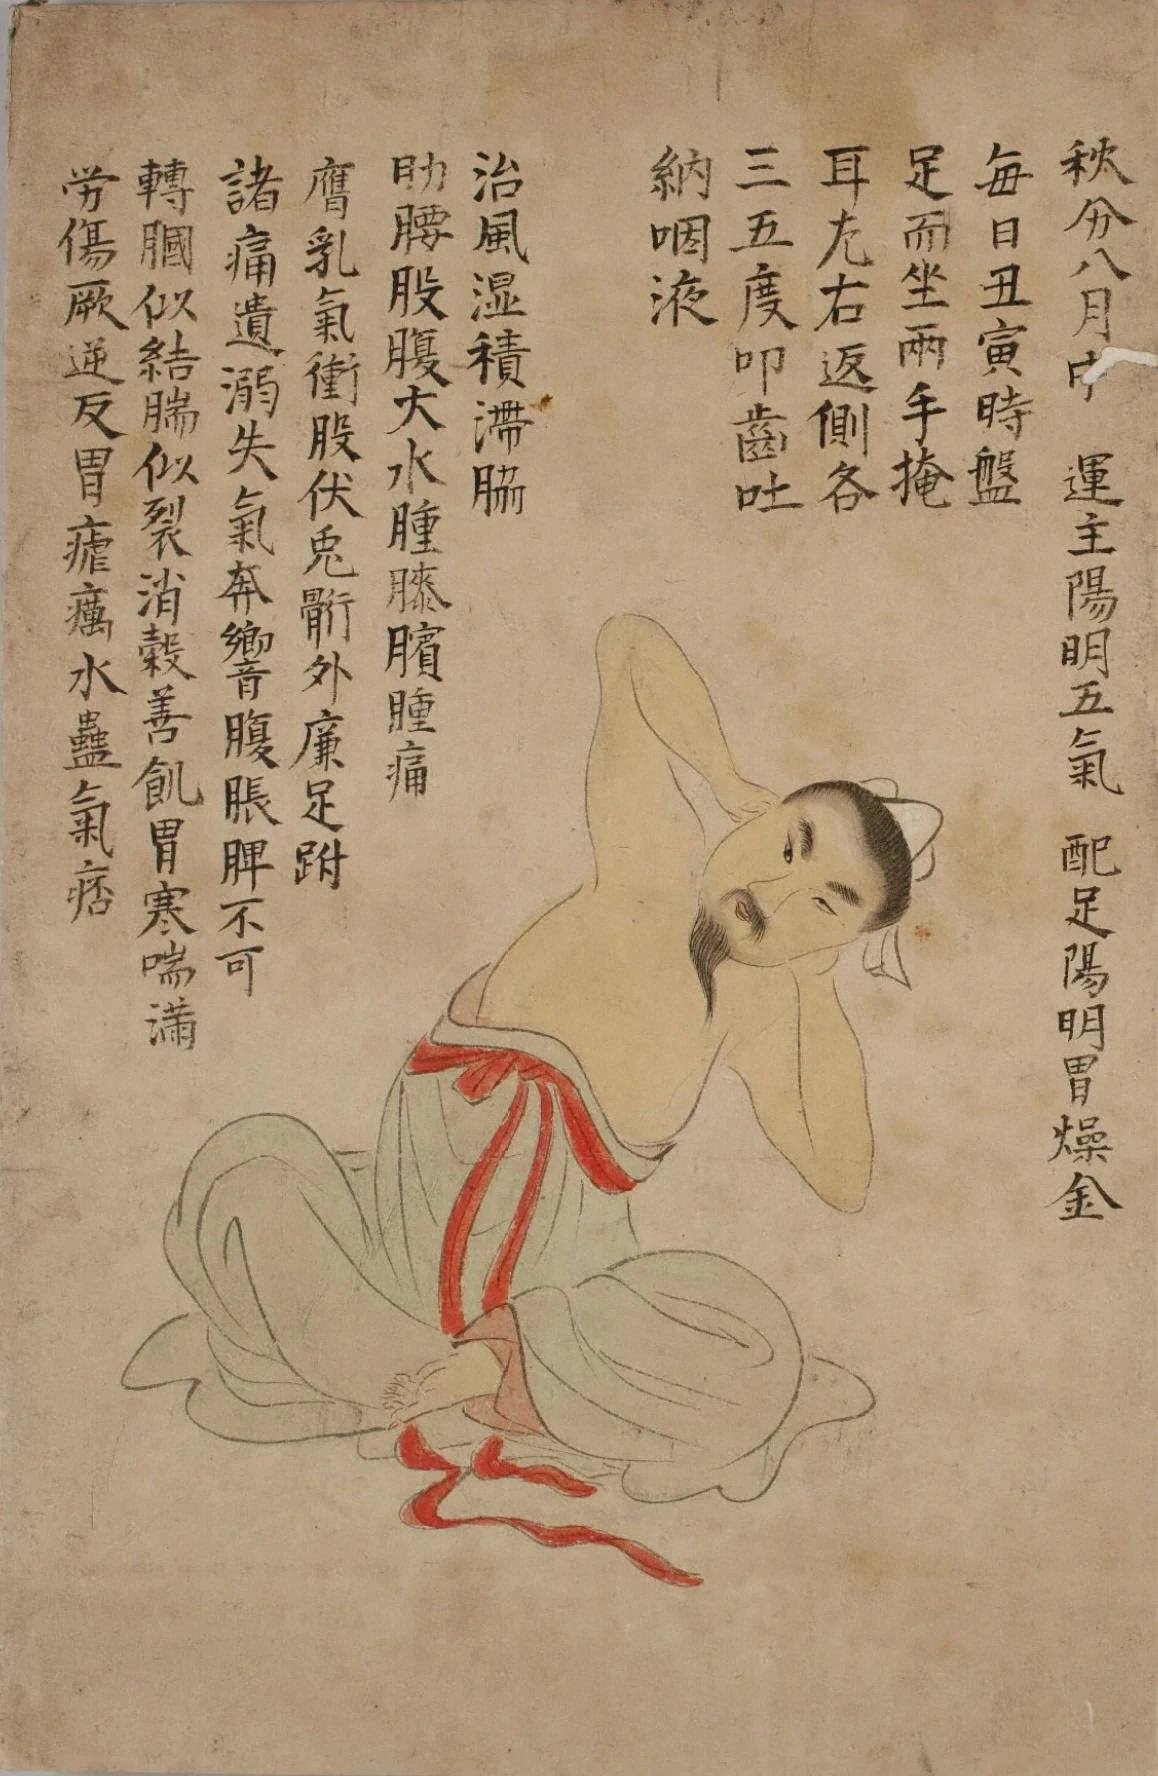 秋分八月中　運主陽明五氣　配足陽明胃燥金
每日丑寅時盤
足而坐兩手掩
耳左右返側各
三五度叩齒吐
納咽液
治風湿積滯脇
肋腰股腹大水腫膝臏腫痛
膺乳氣衝股伏兎骭外廉足跗
諸痛遺溺失氣奔響腹脹脾不可
轉膕似結腨似裂消榖善飢胃寒喘滿
労傷厥逆反胃瘧癘水蠱氣痞